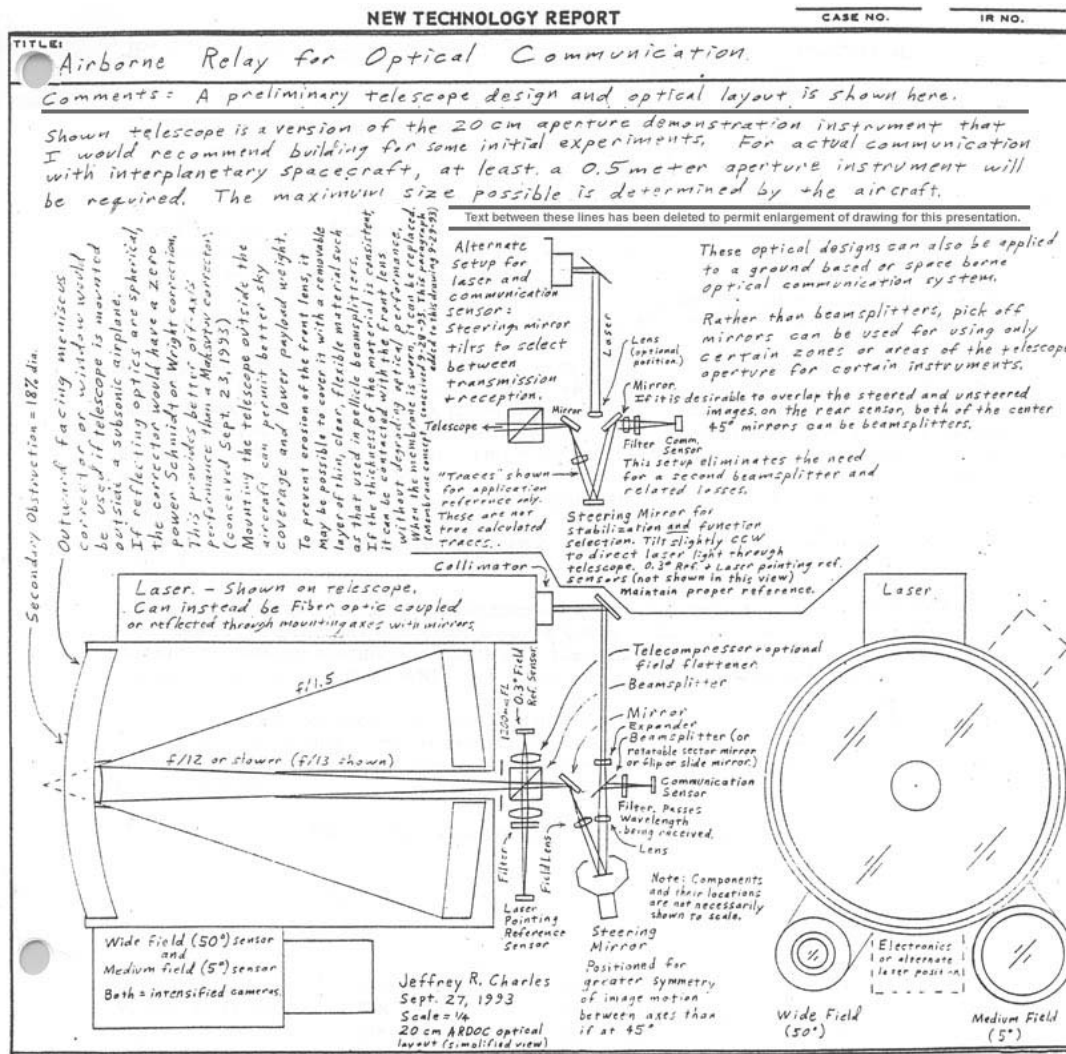 NEW TECHNOLOGY REPORT
CASE NO.
IR NO.
TITLE:
Airborne Relay for Optical Communication.
Comments: A preliminary telescope design and optical layout is shown here.
Shown telescope is a version of the 20 cm aperture demonstration instrument that
I would recommend building for some initial experiments. For actual communication
with interplanetary spacecraft, at least a 0.5 meter aperture instrument will
be required. The maximum size possible is determined by the aircraft.
Text between these lines has been deleted to permit enlargement of drawing for this presentation.
Secondary Obstruction = 18% dia.
Outward facing meniscus
corrector or window would
be used if telescope is mounted
outside a subsonic airplane.
If reflecting optics are spherical,
the corrector would have a zero
power Schmidt or Wright correction.
This provides better off-axis
performance than a Maksutov corrector.
(conceived Sept. 23, 1993)
Mounting the telescope outside the
aircraft can permit better sky
coverage and lower payload weight.
To prevent erosion of the front lens, it
may be possible to cover it with a removable
layer of thin, clear, flexible material such
as that used in pellicle beamsplitters.
If the thickness of the material is consistent,
it can be contacted with the front lens
without degrading optical performance.
When the membrane is worn, it can be replaced.
(Membrane concept conceived 9-28-93. This paragraph
added to this drawing 9-29-93)
Alternate
setup for
laser and
communication
sensor:
Steering mirror
tilts to select
between
transmission
+ reception.
Laser
Lens
(optional
position)
Mirror
Mirror.
Telescope
Filter
Comm.
Sensor
"Traces" shown
for application
reference only.
These are not
true calculated
traces.
These optical designs can also be applied
to a ground based or space borne
optical communication system.
Rather than beamsplitters, pick off
mirrors can be used for using only
certain zones or areas of the telescope
aperture for certain instruments.
If it is desirable to overlap the steered and unsteered
images on the rear sensor, both of the center
45° mirrors can be beamsplitters.
This setup eliminates the need
for a second beamsplitter and
related losses.
Steering Mirror for
stabilization and function
selection. Tilt slightly CCW
to direct laser light through
telescope. 0.3° Ref. + Laser pointing ref.
sensors (not shown in this view)
maintain proper reference.
Collimator
Laser. - Shown on telescope.
Can instead be Fiber optic coupled
or reflected through mounting axes with mirrors.
f/1.5
f/12 or slower (f/13 shown)
1200mm FL
0.3° Field
Ref. Sensor.
Telecompressor + optional
field flattener.
Beamsplitter
Mirror
Expander
Beamsplitter (or
rotatable sector mirror
or flip or slide mirror.)
Communication
Sensor
Filter. Passes
Wavelength
being received.
Lens
Filter
Field Lens
Laser
Pointing
Reference
Sensor
Steering
Mirror
Positioned for
greater symmetry
of image motion
between axes than
if at 45°
Note: Components
and their locations
are not necessarily
shown to scale.
Laser
Wide Field (50°) sensor
and
Medium field (5°) sensor
Both = intensified cameras.
Jeffrey R. Charles
Sept. 27, 1993
Scale = 1/4
20 cm ARDOC optical
layout (simplified view)
Electronics
or alternate
laser position
Wide Field
(50°)
Medium Field
(5°)